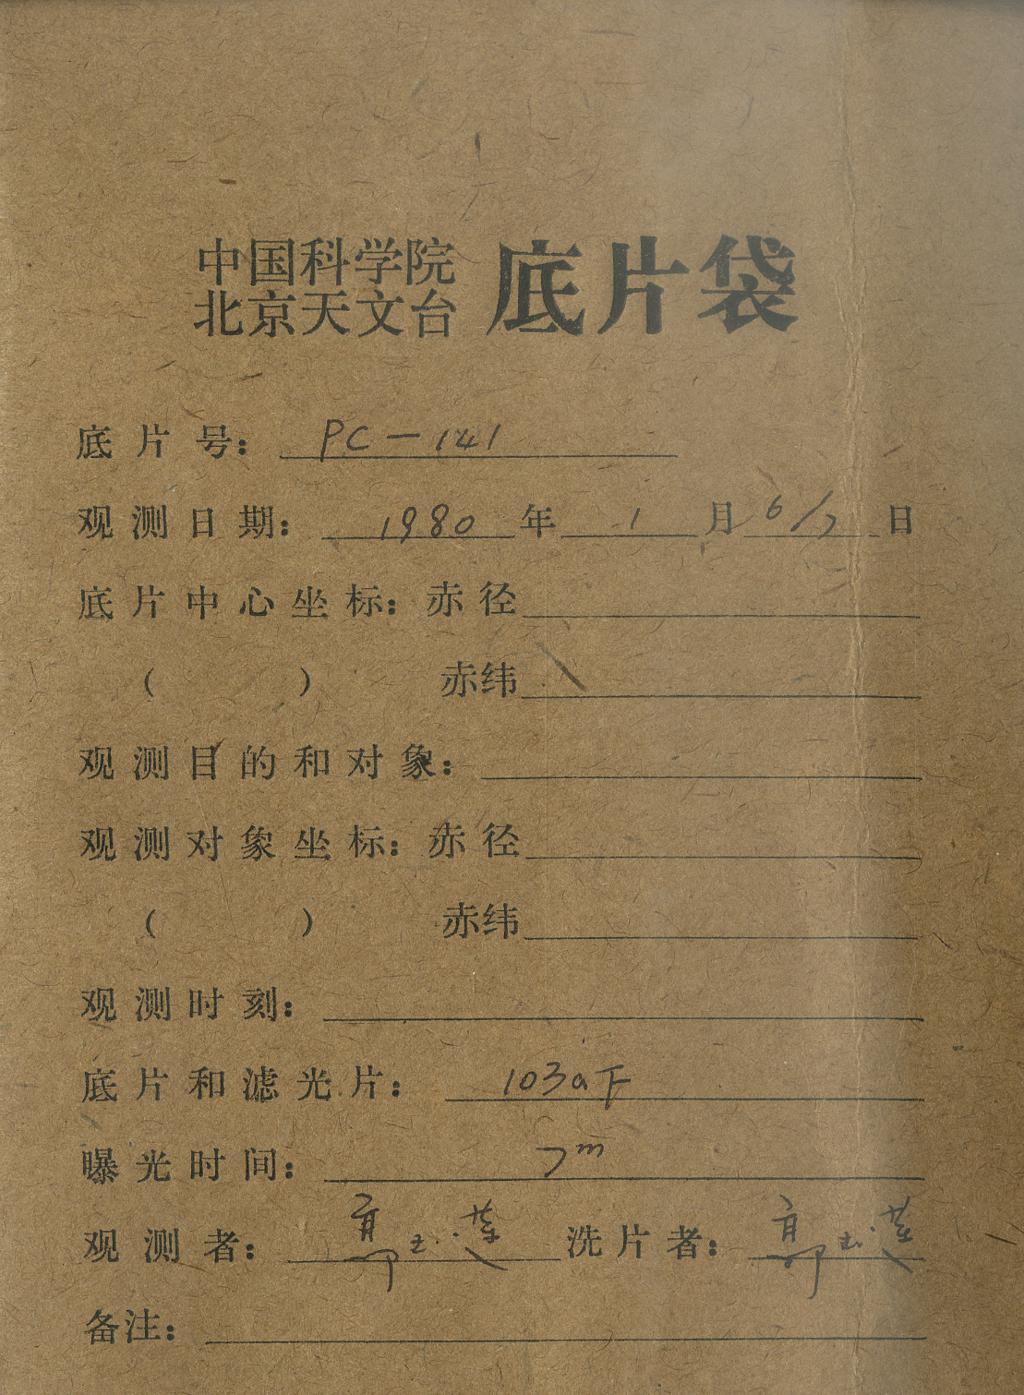 中国科学院
北京天文台 底片袋
底片号: PC-141
观测日期: 1980年1月6/7日
底片中心坐标: 赤径
( ) 赤纬
观测目的和对象:
观测对象坐标: 赤径
( ) 赤纬
观测时刻:
底片和滤光片: 103aF
曝光时间: 7m
观测者: 洗片者:
备注: